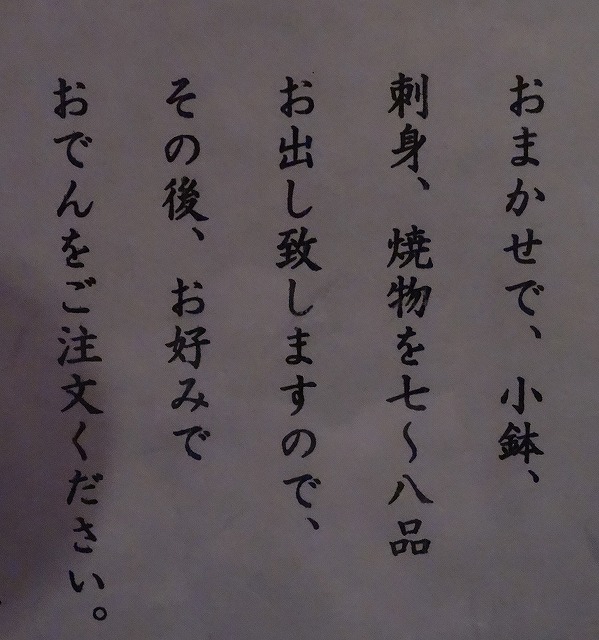 おまかせで、小鉢、
刺身、焼物を七〜八品
お出し致しますので、
その後、お好みで
おでんをご注文ください。